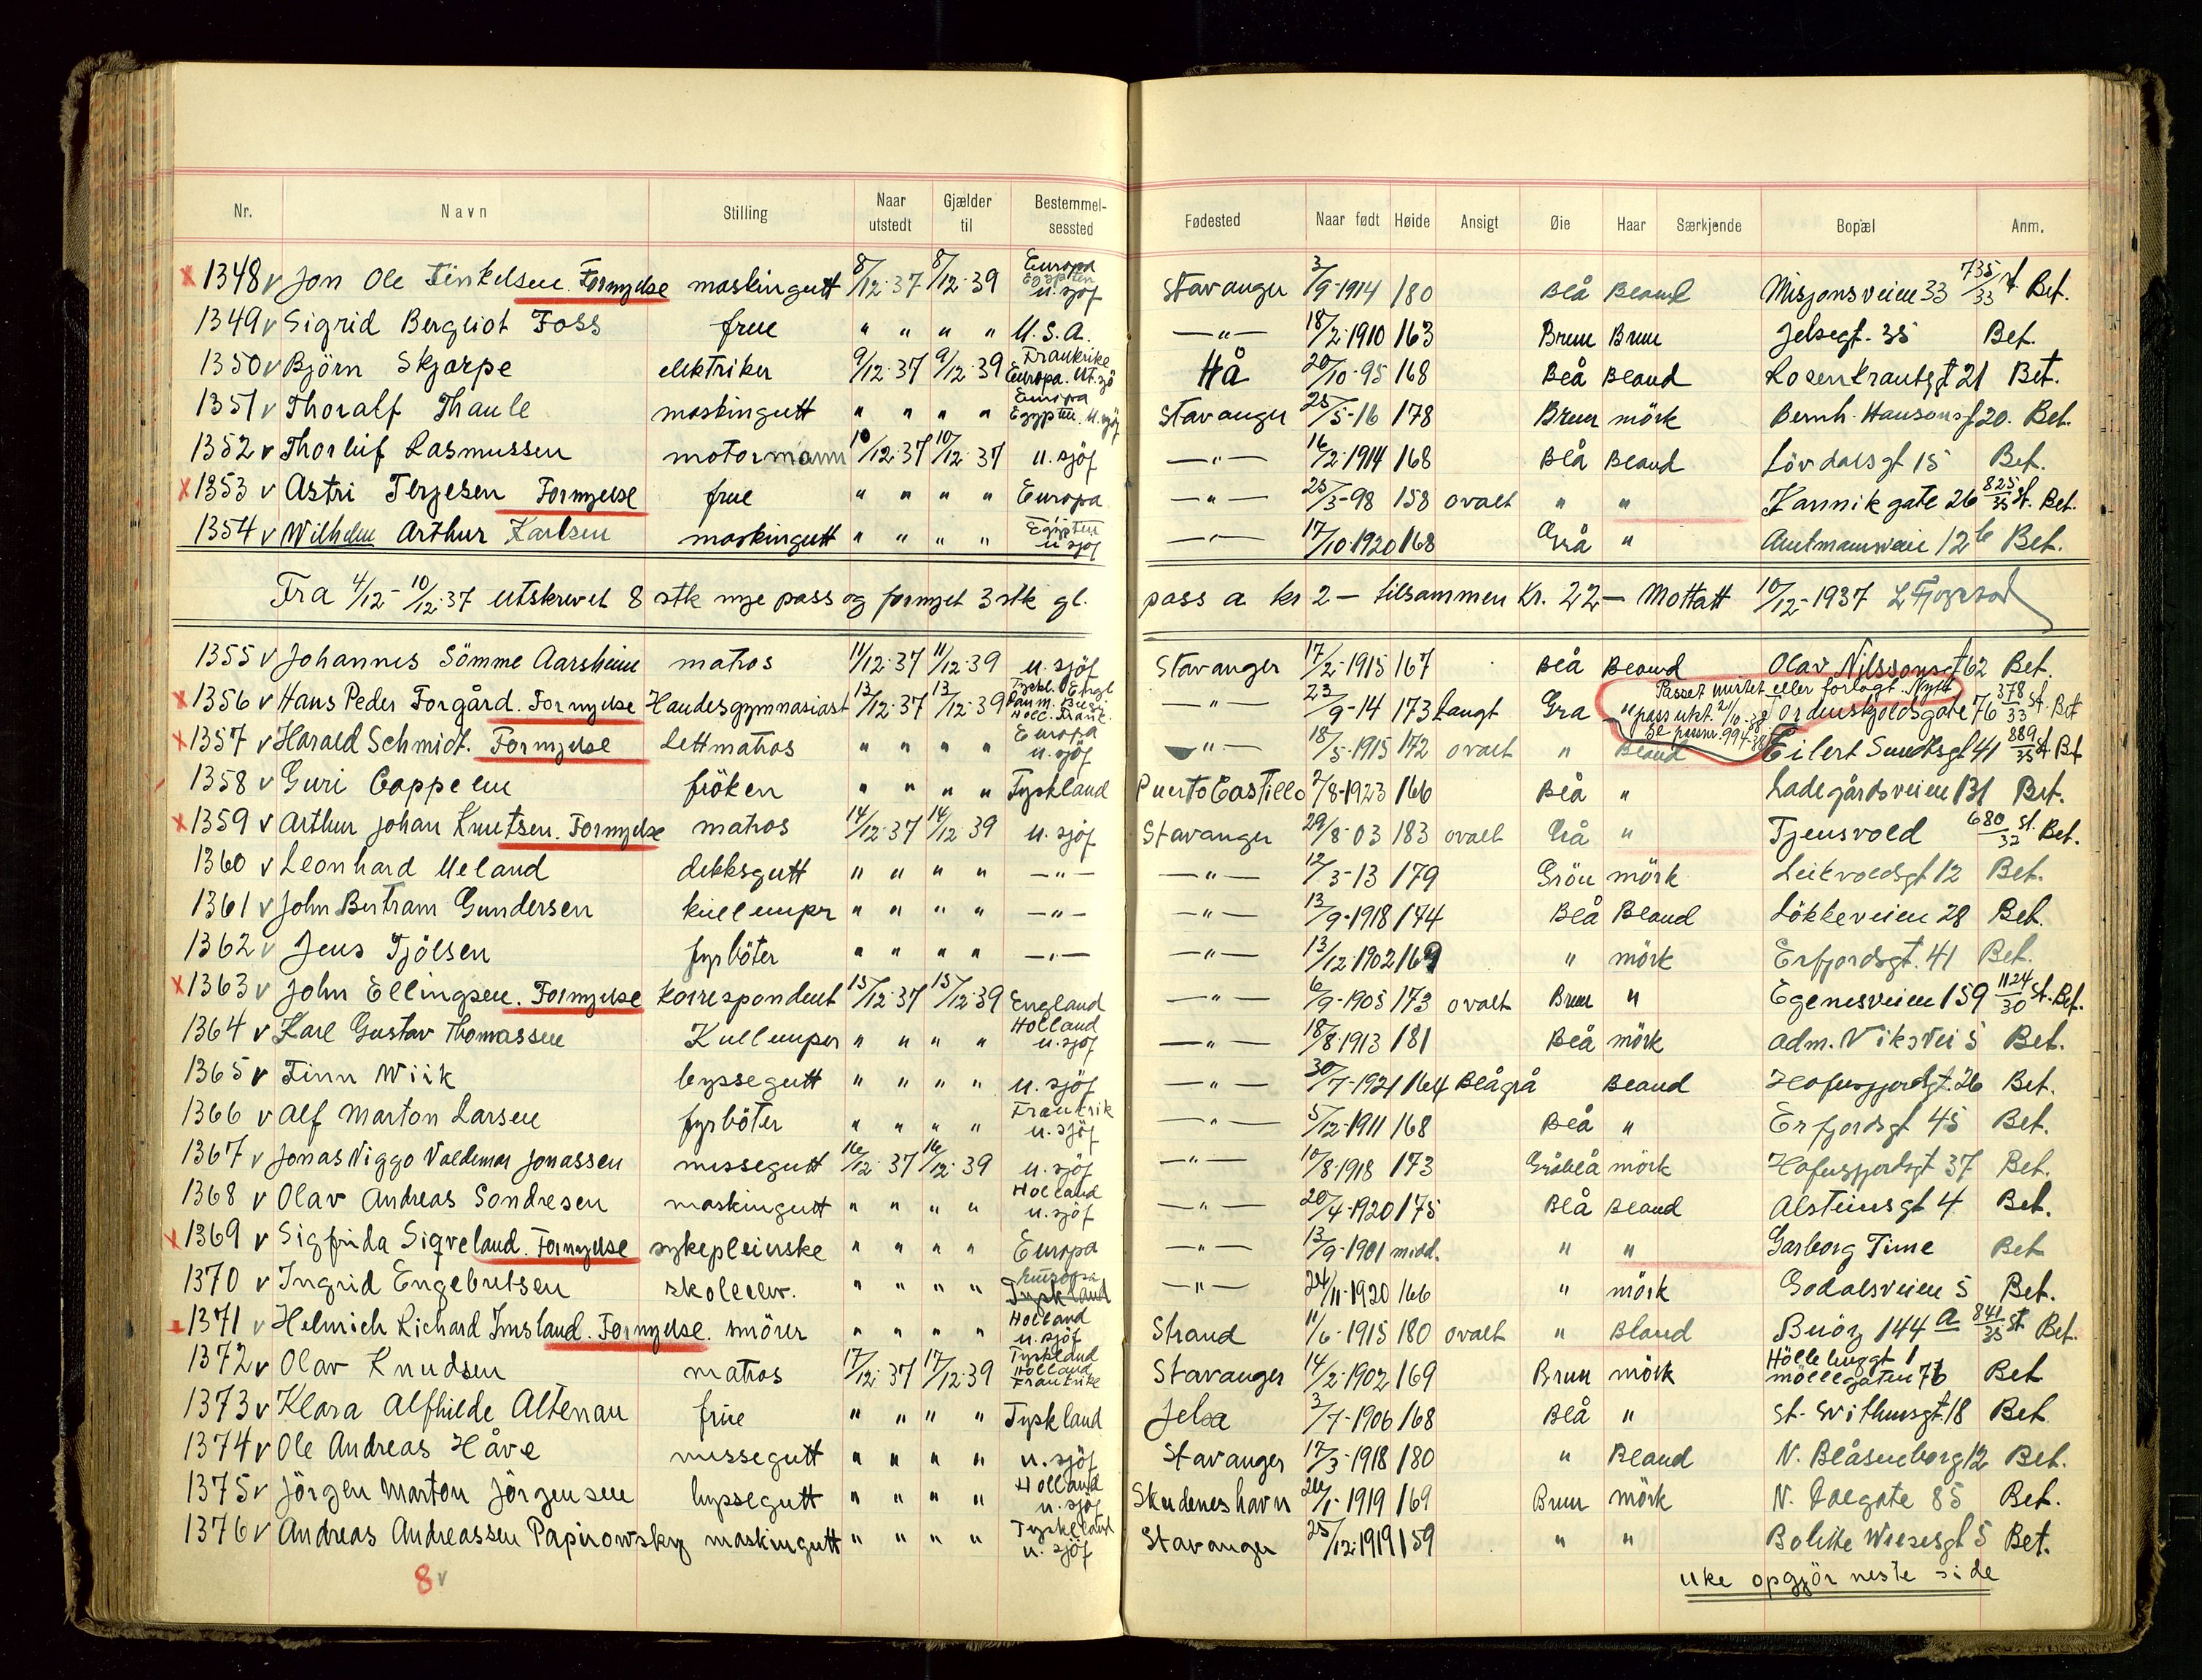 Nr. Navn Stilling Naar utstedt Gjælder til Bestemmelsessted Fødested Naar født Høide Ansigt Øie Haar Særkjende Bopæl Anm.
x 1348 v Jon Ole Finkelsen. Fornyelse maskingutt 8/12-37 8/12-39 Europa Egypten u. sjöf Stavanger 3/9-1914 180 Blå Blond Misjonsveien 33 735/33 st. Bet.
1349 v Sigrid Bergliot Foss frue " " " " U.S.A. —"— 18/2-1910 163 Brun Brun Jelsegt. 35 Bet.
1350 v Björn Skjorpe elektriker 9/12-37 9/12-39 Frankrike Europa. Ut. sjö Hå 20/10-95 168 Blå Blond Rosenkrantzgt 21 Bet.
1351 v Thoralf Thaule maskingutt " " " " Europa Egypten u. sjöf Stavanger 25/5-16 178 Brun mörk Bernh. Hansonsgt 20. Bet.
1352 v Thorleif Rasmussen motormann 10/12-37 10/12-37 u. sjöf —"— 16/2-1914 168 Blå Blond Lövdalsgt 15 Bet.
x 1353 v Astri Terjesen Fornyelse frue " " " " Europa —"— 25/3-98 158 ovalt " " Kannik gate 26 825/35 st. Bet.
1354 v Wilhelm Arthur Karlsen maskingutt " " " " Egypten u sjöf —"— 17/10-1920 168 Grå " Amtmannveien 12b Bet.
Fra 4/12 - 10/12-37 utskrevet 8 stk nye pass og fornyet 3 stk gl. pass a kr 2 — tilsammen Kr. 22 — Mottatt 10/12-1937
1355 v Johannes Sömme Aarsheim matros 11/12-37 11/12-39 u. sjöf Stavanger 17/2-1915 167 Blå Blond Olav Nilssonsgt 62 Bet.
x 1356 v Hans Peder Torgård. Fornyelse Handelsgymnasiast 13/12-37 13/12-39 Tyskl. Engl Danm. Belg. Holl. Frank. —"— 23/9-14 173 Langt Grå " Ordenskjoldsgate 76 378/33 st. Bet
Passet mistet eller forlagt. Nytt pass utst. 21/10-38 Se passnr. 994-38
x 1357 v Harald Schmidt. Fornyelse Lettmatros " " " " Europa u. sjöf —"— 18/5-1915 172 ovalt " Blond Eilert Sundtsgt 41 889/35 st Bet
1358 v Guri Cappelen fröken " " " " Tyskland Puerto Castillo 7/8-1923 166 Blå " Ladegårdsveien 131 Bet.
x 1359 v Arthur Johan Knutsen. Fornyelse matros 14/12-37 14/12-39 u. sjöf Stavanger 29/8-03 183 ovalt Grå " Tjensvold 680/32 st. Bet.
1360 v Leonhard Ueland dekksgutt " " " " —"— —"— 12/3-13 179 Grön mörk Leikvoldsgt 12 Bet.
1361 v John Bertram Gundersen kullemper " " " " —"— —"— 13/9-1918 174 Blå Blond Lökkeveien 28 Bet.
1362 v Jens Tjölsen fyrböter " " " " —"— —"— 13/12-1902 169 " mörk Erfjordsgt. 41 Bet.
x 1363 v John Ellingsen. Fornyelse korrespondent 15/12-37 15/12-39 England —"— 6/9-1905 173 ovalt Brun " Egenesveien 159 1124/30 st. Bet.
1364 v Karl Gustav Thomassen Kullemper " " " " Holland u. sjöf —"— 18/8-1913 181 Blå mörk Adm. Viksvei 5 Bet.
1365 v Finn Wiik byssegutt " " " " u. sjöf —"— 30/7-1921 164 Blågrå Blond Hafrsfjordsgt. 26 Bet.
1366 v Alf Marton Larsen fyrböter " " " " Frankrik u. sjöf —"— 5/12-1911 168 Blå " Erfjordsgt 45 Bet.
1367 v Jonas Viggo Valdemar Jonassen messegutt 16/12-37 16/12-39 u. sjöf —"— 10/8-1918 173 Gråblå mörk Hafrsfjordsgt 37 Bet.
1368 v Olav Andreas Sondresen maskingutt " " " " Holland u. sjöf —"— 20/4-1920 175 Blå Blond Alsteinsgt 4 Bet.
x 1369 v Sigfrida Sigveland. Fornyelse sykepleierske " " " " Europa —"— 13/9-1901 midd. " " Garborg Time Bet
1370 v Ingrid Engebretsen skoleelev. " " " " Europa Tyskland —"— 24/11-1920 166 " mörk Godalsveien 5 Bet.
x 1371 v Helmich Richard Imsland. Fornyelse. smörer " " " " Holland u. sjöf Strand 11/6-1915 180 ovalt " Blond Buöy 144 a 841/35 st Bet.
1372 v Olav Knudsen matros 17/12-37 17/12-39 Tyskland Holland Frankrike Stavanger 14/2-1902 169 Brun mörk möllegaten 76 Bet
1373 v Klara Alfhilde Altenau frue " " " " Tyskland Jelsa 3/7-1906 168 Blå " St. Svithunsgt. 18 Bet
1374 v Ole Andreas Håve messegutt " " " " u. sjöf Stavanger 17/3-1918 180 " Blond N. Blåsenborg 12 Bet.
1375 v Jörgen Marton Jörgensen byssegutt " " " " Holland u. sjöf Skudeneshavn 26/1-1919 169 Brun mörk N. Dalgate 85 Bet.
1376 v Andreas Andreassen Papirowsky maskingutt " " " " Tyskland u. sjöf Stavanger 25/12-1919 159 " " Bolette Wiesesgt 5 Bet.
8 v uke opgjör neste side